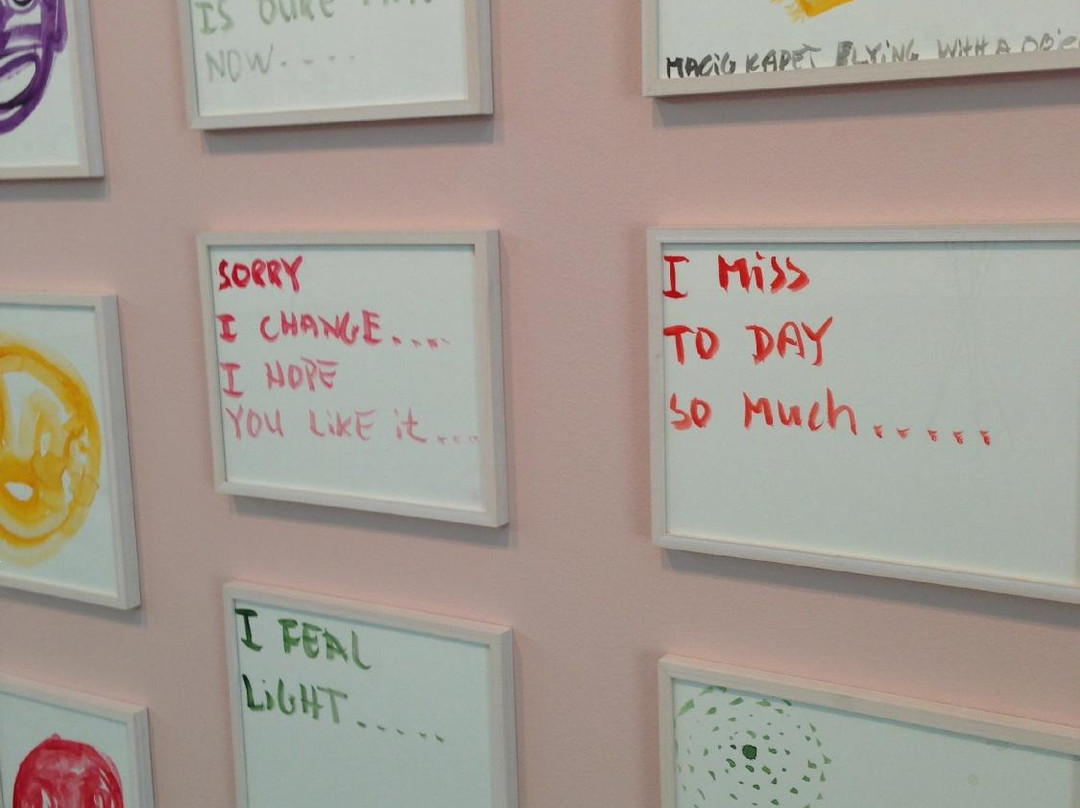 IS
NOW....
MAGIG KAPET FLYING WITH A
SORRY
I CHANGE....
I HOPE
YOU LIKE it....
I Miss
TO DAY
SO MUCH.....
I FEAL
LIGHT.....